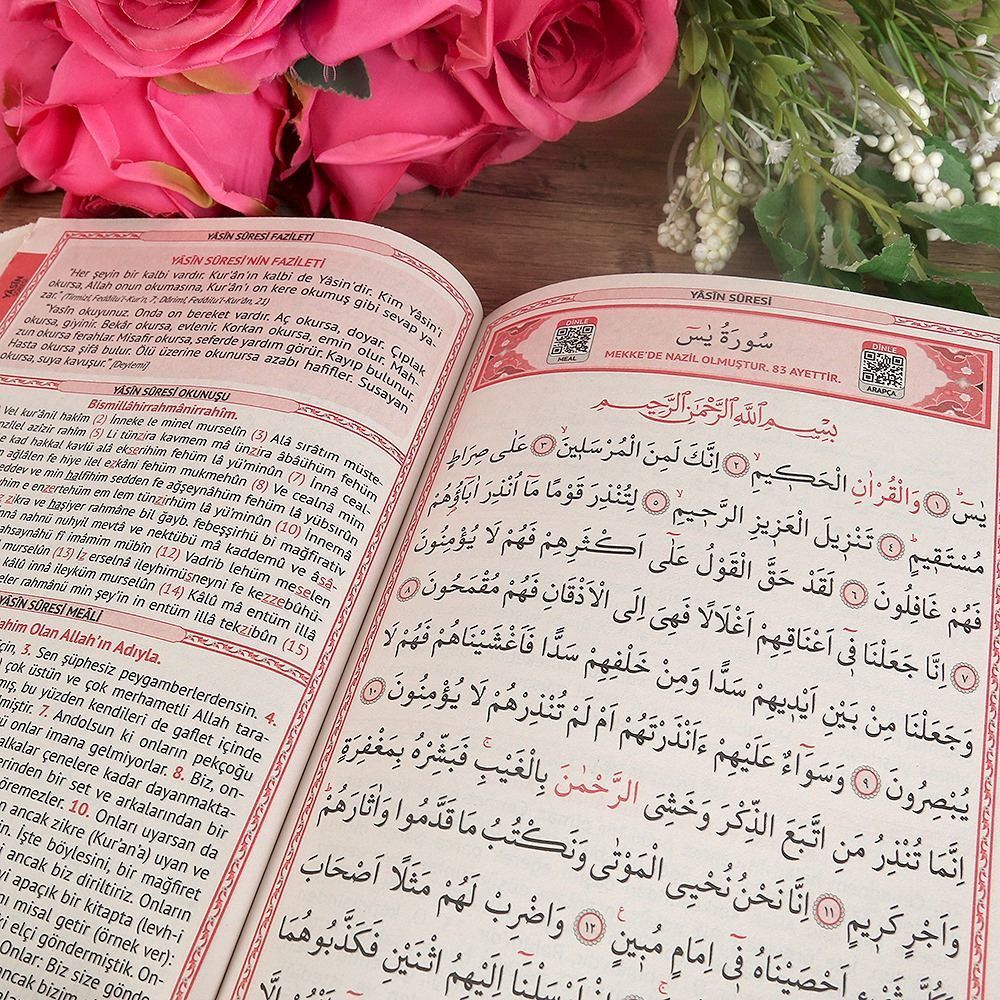 YÂSÎN SÛRESİ FAZİLETİ
YÂSÎN SÛRESİ'NİN FAZİLETİ
"Her şeyin bir kalbi vardır. Kur'ân'ın kalbi de Yâsin'dir. Kim Yâsin'i
okursa, Allah onun okumasına, Kur'ân'ı on kere okumuş gibi sevap ya-
zar." (Tirmizî, Fedâilu'l-Kur'n, 7; Dârimî, Fedâilu'l-Kur'ân, 21)
"Yasîn okuyunuz. Onda on bereket vardır. Aç okursa, doyar. Çıplak
okursa, giyinir. Bekâr okursa, evlenir. Korkan okursa, emin olur. Mah-
zun okursa ferahlar. Misafir okursa, seferde yardım görür. Kayıp bulunur.
Hasta okursa şifâ bulur. Ölü üzerine okunursa azabı hafifler. Susayan
okursa, suya kavuşur." (Deylemî)
YÂSÎN SÛRESİ OKUNUŞU
Bismillâhirrahmânirrahîm.
Vel kur'ânil hakîm (2) İnneke le minel murselîn (3) Alâ sırâtım müste-
nzîlel azîzir rahîm (5) Li tünzira kavmem mâ ünzira âbâühüm fehüm
e kad hakkal kavlü alâ ekserihim fehüm lâ yü'minûn (7) İnnâ ceal-
n ağlâlen fe hiye ilel ezkâni fehüm mukmehûn (8) Ve cealnâ mim
eddev ve min halfihim sedden fe ağşeynâhüm fehüm lâ yübsırûn
him e enzertehüm em lem tünzirhüm lâ yü'minûn (10) İnnemâ
z zikra ve haşiyer rahmâne bil ğayb, febeşşirhü bi mağfirativ
nnâ nahnü nuhyil mevtâ ve nektübü mâ kaddemû ve âsâ-
ahsaynâhü fî imâmim mübîn (12) Vadrib lehüm meselen
murselûn (13) İz erselnâ ileyhimüsneyni fe kezzebûhü-
kâlû innâ ileyküm murselûn (14) Kâlû mâ entüm illâ
eler rahmânü min şey'in in entüm illâ tekzibûn (15)
YÂSÎN SÛRESİ MEÂLİ
ahim Olan Allah'ın Adıyla.
için, 3. Sen şüphesiz peygamberlerdensin. 4.
çok üstün ve çok merhametli Allah tara-
mış, bu yüzden kendileri de gaflet içinde
miştir. 7. Andolsun ki onların pekçoğu
ü onlar imana gelmiyorlar. 8. Biz, on-
alkalar çenelere kadar dayanmakta-
erinden bir set ve arkalarından bir
öremezler. 10. Onları uyarsan da
n ancak zikre (Kur'an'a) uyan ve
in. İşte böylesini, bir mağfiret
i ancak biz diriltiriz. Onların
yi apaçık bir kitapta (levh-i
i misal getir (örnek ver):
ki elçi göndermiştik. On-
Onlar: Biz size gönde-
ancak bizim
YÂSÎN SÛRESİ
DİNLE
MEAL
سُورَةُ يٰسٓ
MEKKE'DE NAZİL OLMUŞTUR. 83 AYETTİR.
DİNLE
ARAPÇA
بِسْمِ اللّٰهِ الرَّحْمٰنِ الرَّحٖيمِ
يٰسٓۜ ﴿١﴾ وَالْقُرْاٰنِ الْحَكٖيمِۙ ﴿٢﴾ اِنَّكَ لَمِنَ الْمُرْسَلٖينَۙ ﴿٣﴾ عَلٰى صِرَاطٍ
مُسْتَقٖيمٍۜ ﴿٤﴾ تَنْزٖيلَ الْعَزٖيزِ الرَّحٖيمِۙ ﴿٥﴾ لِتُنْذِرَ قَوْمًا مَٓا اُنْذِرَ اٰبَٓاؤُهُمْ
فَهُمْ غَافِلُونَ ﴿٦﴾ لَقَدْ حَقَّ الْقَوْلُ عَلٰٓى اَكْثَرِهِمْ فَهُمْ لَا يُؤْمِنُونَ
﴿٧﴾ اِنَّا جَعَلْنَا فٖٓي اَعْنَاقِهِمْ اَغْلَالًا فَهِيَ اِلَى الْاَذْقَانِ فَهُمْ مُقْمَحُونَ ﴿٨﴾
وَجَعَلْنَا مِنْ بَيْنِ اَيْدٖيهِمْ سَدًّا وَمِنْ خَلْفِهِمْ سَدًّا فَاَغْشَيْنَاهُمْ فَهُمْ لَا
يُبْصِرُونَ ﴿٩﴾ وَسَوَٓاءٌ عَلَيْهِمْ ءَاَنْذَرْتَهُمْ اَمْ لَمْ تُنْذِرْهُمْ لَا يُؤْمِنُونَ ﴿١٠﴾
اِنَّمَا تُنْذِرُ مَنِ اتَّبَعَ الذِّكْرَ وَخَشِيَ الرَّحْمٰنَ بِالْغَيْبِۚ فَبَشِّرْهُ بِمَغْفِرَةٍ
وَاَجْرٍ كَرٖيمٍ ﴿١١﴾ اِنَّا نَحْنُ نُحْيِي الْمَوْتٰى وَنَكْتُبُ مَا قَدَّمُوا وَاٰثَارَهُمْۜ
وَكُلَّ شَيْءٍ اَحْصَيْنَاهُ فٖٓي اِمَامٍ مُبٖينٍ۟ ﴿١٢﴾ وَاضْرِبْ لَهُمْ مَثَلًا اَصْحَابَ
اَرْسَلْنَٓا اِلَيْهِمُ اثْنَيْنِ فَكَذَّبُوهُمَا